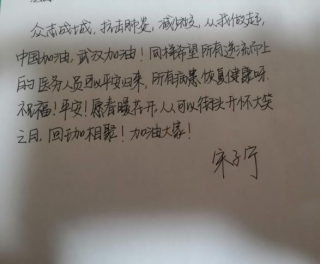 众志成城，抗击肺炎，减少外出，从我做起，
中国加油，武汉加油！同样希望所有逆流而上
的医务人员可以平安归来，所有病患恢复健康呀
祝福！平安！愿春暖花开，人人可以街头开怀大笑
之日，回家相聚！加油大家！
宋子宁